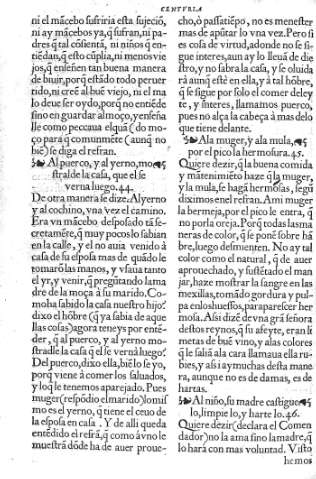 CENTVRIA
ni el mãcebo sufriria esta sujeció,
ni ay mãcebos ya, q̃ sufran, ni pa-
dres q̃ tal cõsientã, ni niños q̃ en-
tiēdan, q̃ esto cūplia, ni menos vie
jos, q̃ enseñen tan buena manera
de biuir, porq̃ estādo todo peruer
tido, ni creē al bué viejo, ni el ma
lo deue ser oydo, porq̃ no entiēde
sino en guardar al moço, y enseña
lle como peccaua el quã do mo-
ço para q̃ comunmēte (aunq̃ no
biē) se diga el refran.
Al puerco, y al yerno, mo
stralde la casa, que el se
verna luego. 44.
De otra manera se dize. Al yerno
y al cochino, vna vez el camino.
Era vn mãcebo desposado tã se-
cretamēte, q̃ muy pocos lo sabian
en la calle, y el no auia venido à
casa de su esposa mas de quãdo le
tomarō las manos, y vsaua tanto
el yr, y venir, q̃ pregūtando la ma
dre de la moça à su marido. Co-
mo ha sabido la casa nuestro hijo?
dixo el hōbre (q̃ ya sabia de aque
llas cosas) agora teneys por enten-
der, q̃ al puerco, y al yerno mo-
stradle la casa q̃ el se vernà luego?
Del puerco, dixo ella, biē lo se yo,
porq̃ viene à comer los saluados,
y lo q̃ le tenemos aparejado. Pues
muger (respōdio el marido) lo mis
mo es el yerno, q̃ tiene el ceuo de
la esposa en casa. Y de alli queda
entēdido el refrã, q̃ como à vno le
muestrã dōde ha de auer proue-
cho, ò passatiēpo, no es menester
mas de apūtar lo vna vez. Pero si
es cosa de virtud, adonde no se si-
gue interes, aun ay lo lleuã de die
stro, y no sabra la casa, y se oluida
rà aunq̃ estè en ella, y à tal hōbre,
q̃ se sigue por solo el comer deley
te, y interes, llamamos puerco,
pues no alça la cabeça à mas delo
que tiene delante.
Ala muger, y ala mula,
por el pico la hermosura. 45.
Quiere dezir, q̃ la buena comida
y mātenimiēto haze q̃ la muger,
y la mula, se hagã hermosas, segū
diximos en el refran. Ami muger
la bermeja, por el pico le entra, q̃
no por la oreja. Porq̃ todas las ma
neras de color, q̃ se pone sobre hā
bre, luego desmienten. No ay tal
color como el natural, q̃ de auer
aprouechado, y sustētado el man
jar, haze mostrar la sangre en las
mexillas, tomãdo gordura y pul-
pa en los huessos, para parescer her
mosa. Assi dizē de vna grã señora
destos reynos, q̃ su afeyte, eran li
metas de buē vino, y a las colores
q̃ le saliã a la cara llamaua ella ru-
bies, y assi ay muchas desta mane
ra, aunque no es de damas, es de
hartas.
Al niño, su madre castigue
lo, limpie lo, y harte lo. 46.
Quiere dezir (declara el Comen
dador) no la ama sino la madre, q̃
lo harà con mas voluntad. Visto
hemos